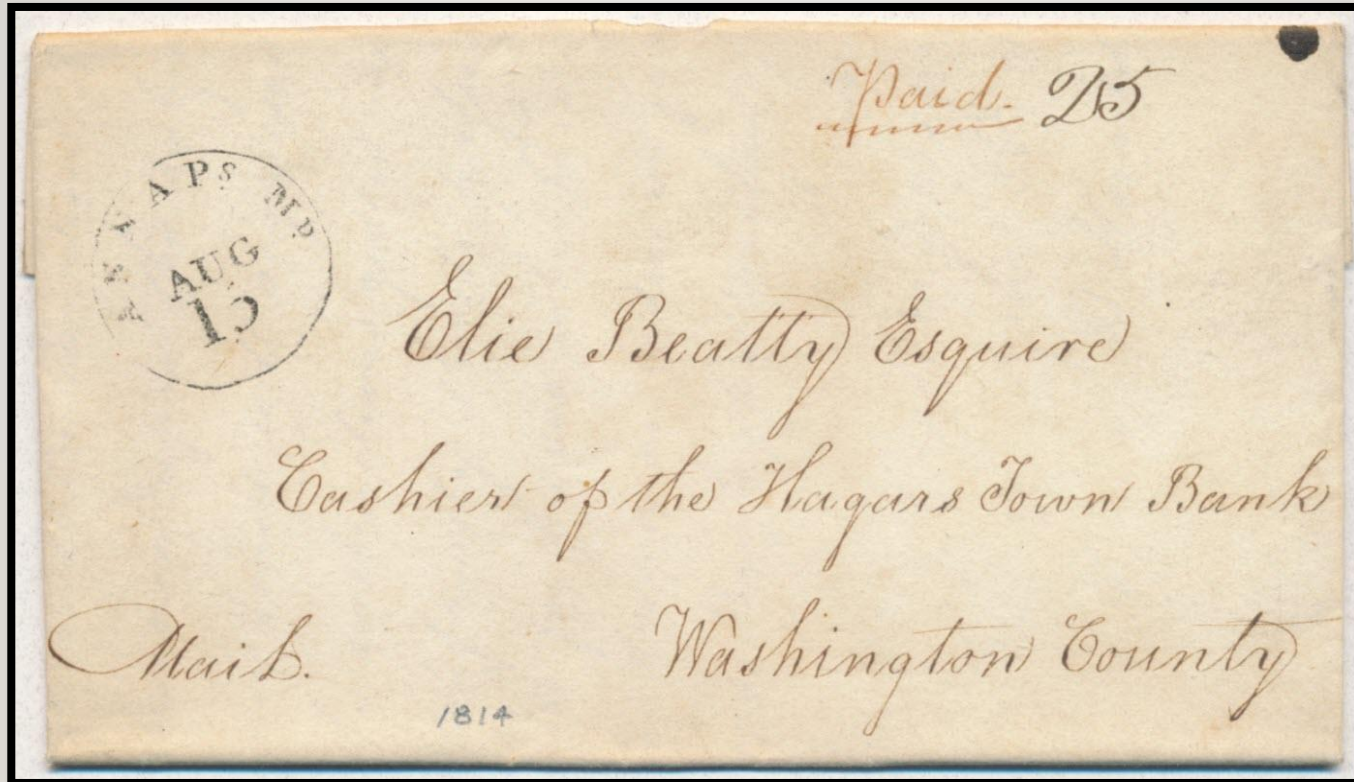 Paid. 25
ANNAPS MD
AUG
15
Elie Beatty Esquire
Cashier of the Hagars Town Bank
Mail. Washington County
1814